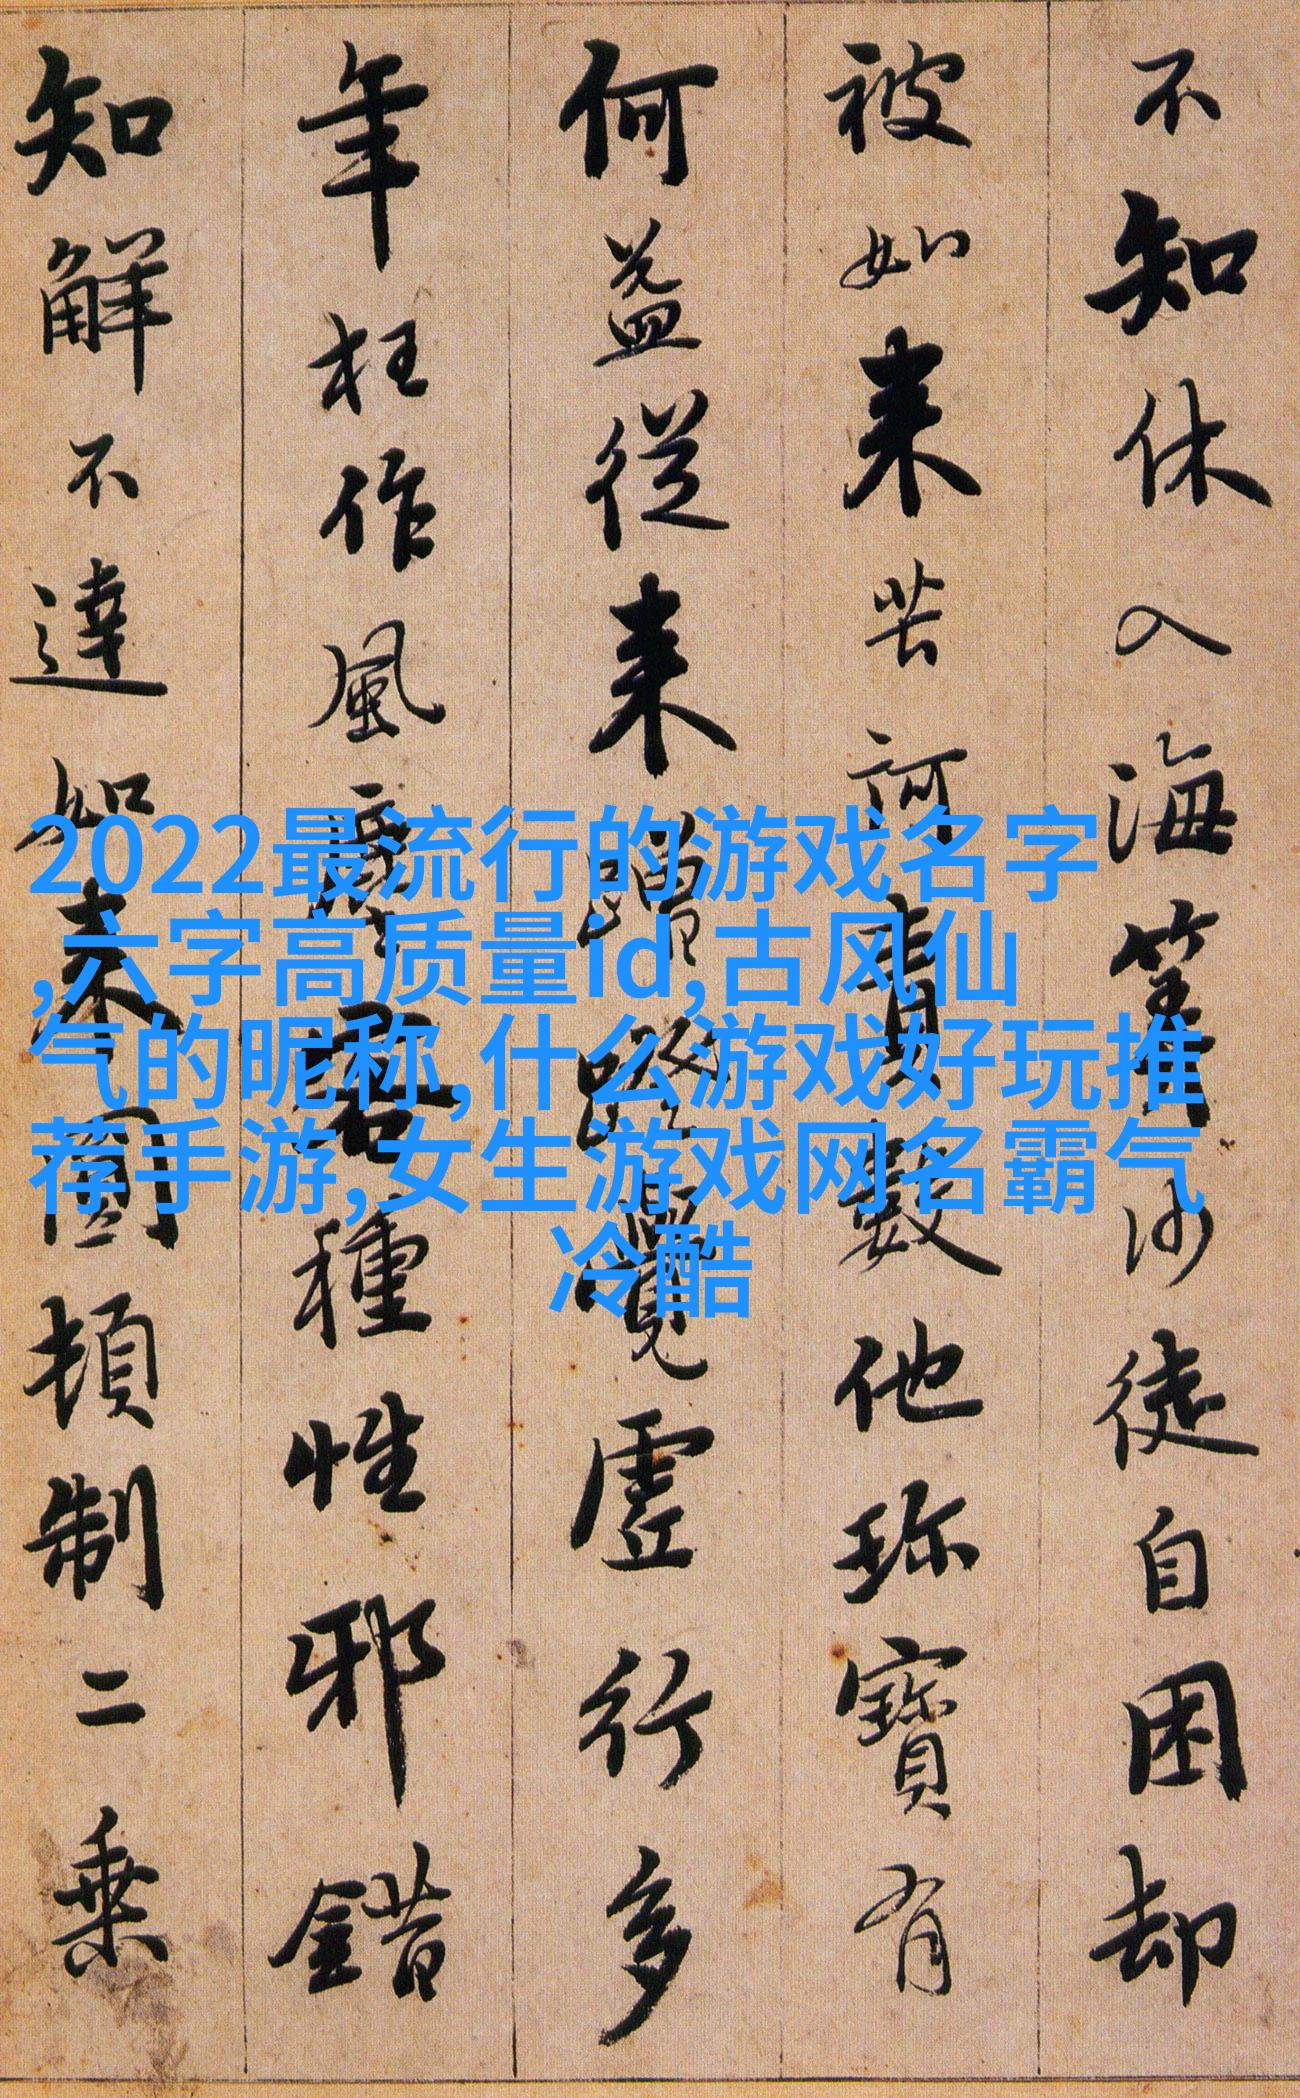 不知休入海筭沙徒自困却
被如来苦訶責數他珍寶有
何益從来蹭蹬覺虛行多
年枉作風塵客種性邪錯
知解不達如来圓頓制二乗
2022最流行的游戏名字
,六字高质量id,古风仙
气的昵称,什么游戏好玩推
荐手游,女生游戏网名霸气
冷酷